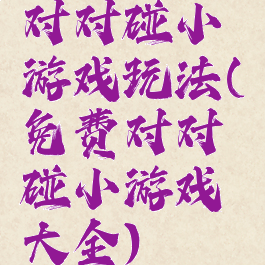 对对碰小
游戏玩法(
免费对对
碰小游戏
大全)